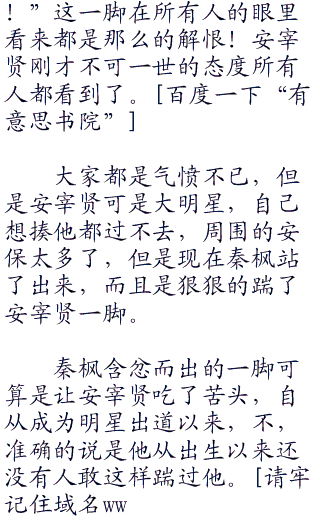 ！”这一脚在所有人的眼里
看来都是那么的解恨！安宰
贤刚才不可一世的态度所有
人都看到了。[百度一下“有
意思书院”]
大家都是气愤不已，但
是安宰贤可是大明星，自己
想揍他都过不去，周围的安
保太多了，但是现在秦枫站
了出来，而且是狠狠的踹了
安宰贤一脚。
秦枫含忿而出的一脚可
算是让安宰贤吃了苦头，自
从成为明星出道以来，不，
准确的说是他从出生以来还
没有人敢这样踹过他。[请牢
记住域名ww